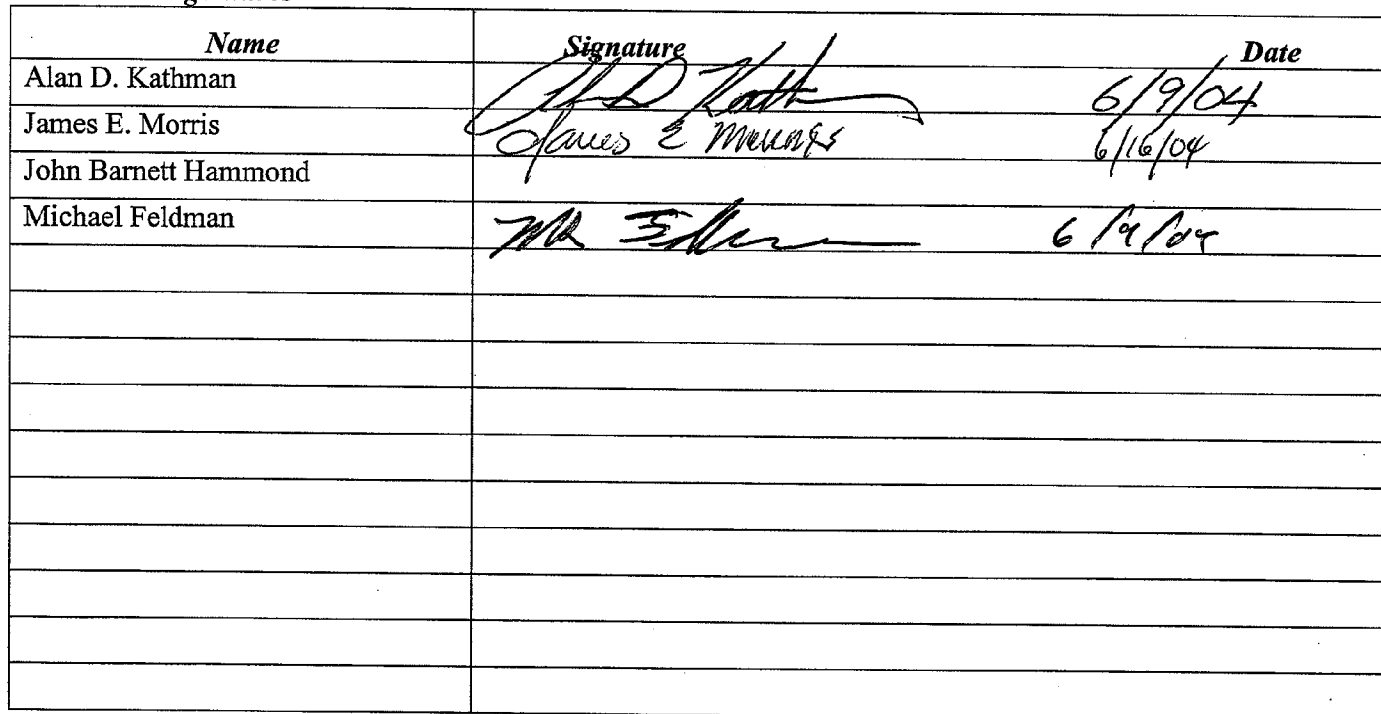 Name Signature Date
Alan D. Kathman Alan D Kathman 6/9/04
James E. Morris James E Morris 6/16/04
John Barnett Hammond
Michael Feldman 6/9/04